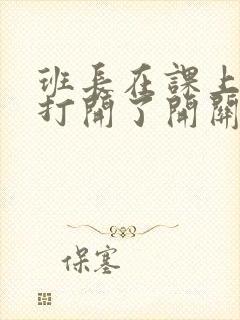 班長在課上
打開了開關
保塞